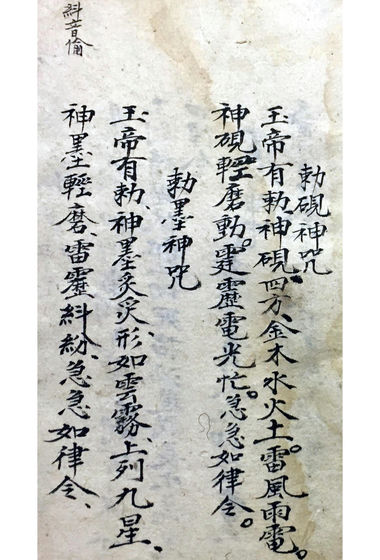 勅硯神咒
玉帝有勅、神硯四方、金木水火土。雷風雨電。
神硯輕磨動。霆靂電光忙。急急如律令。
勅墨神咒
玉帝有勅、神墨炙炙形、如雲霧、上列九星、
神墨輕磨、雷靂紏紛、急急如律令、
紏音偷